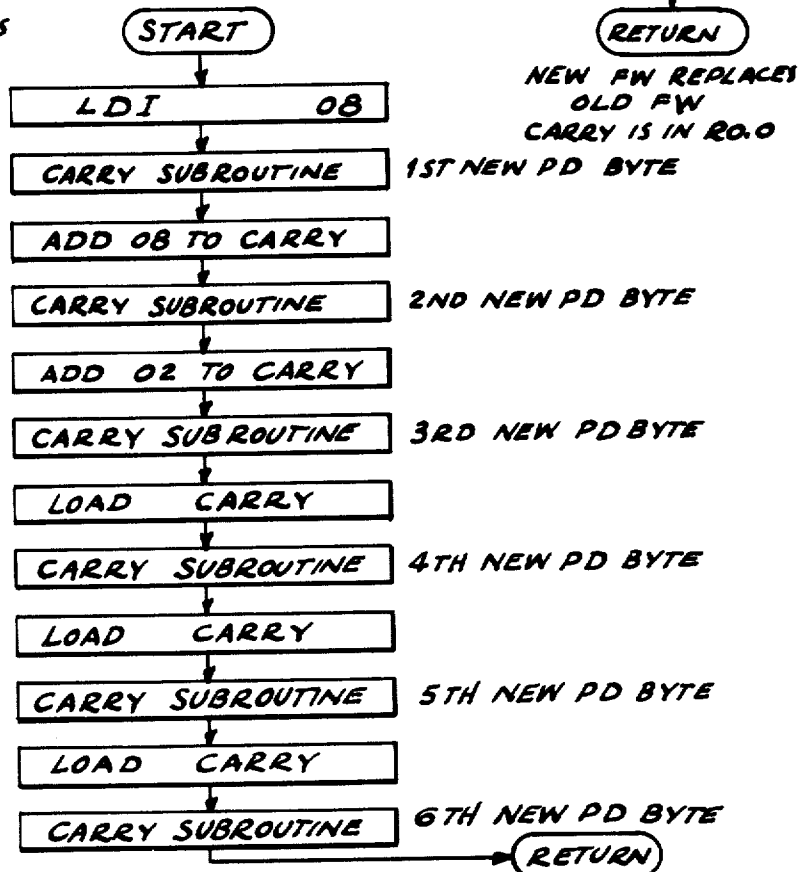 S
START
RETURN
NEW FW REPLACES
OLD FW
CARRY IS IN R0.0
LDI 08
CARRY SUBROUTINE
1ST NEW PD BYTE
ADD 08 TO CARRY
CARRY SUBROUTINE
2ND NEW PD BYTE
ADD 02 TO CARRY
CARRY SUBROUTINE
3RD NEW PD BYTE
LOAD CARRY
CARRY SUBROUTINE
4TH NEW PD BYTE
LOAD CARRY
CARRY SUBROUTINE
5TH NEW PD BYTE
LOAD CARRY
CARRY SUBROUTINE
6TH NEW PD BYTE
RETURN